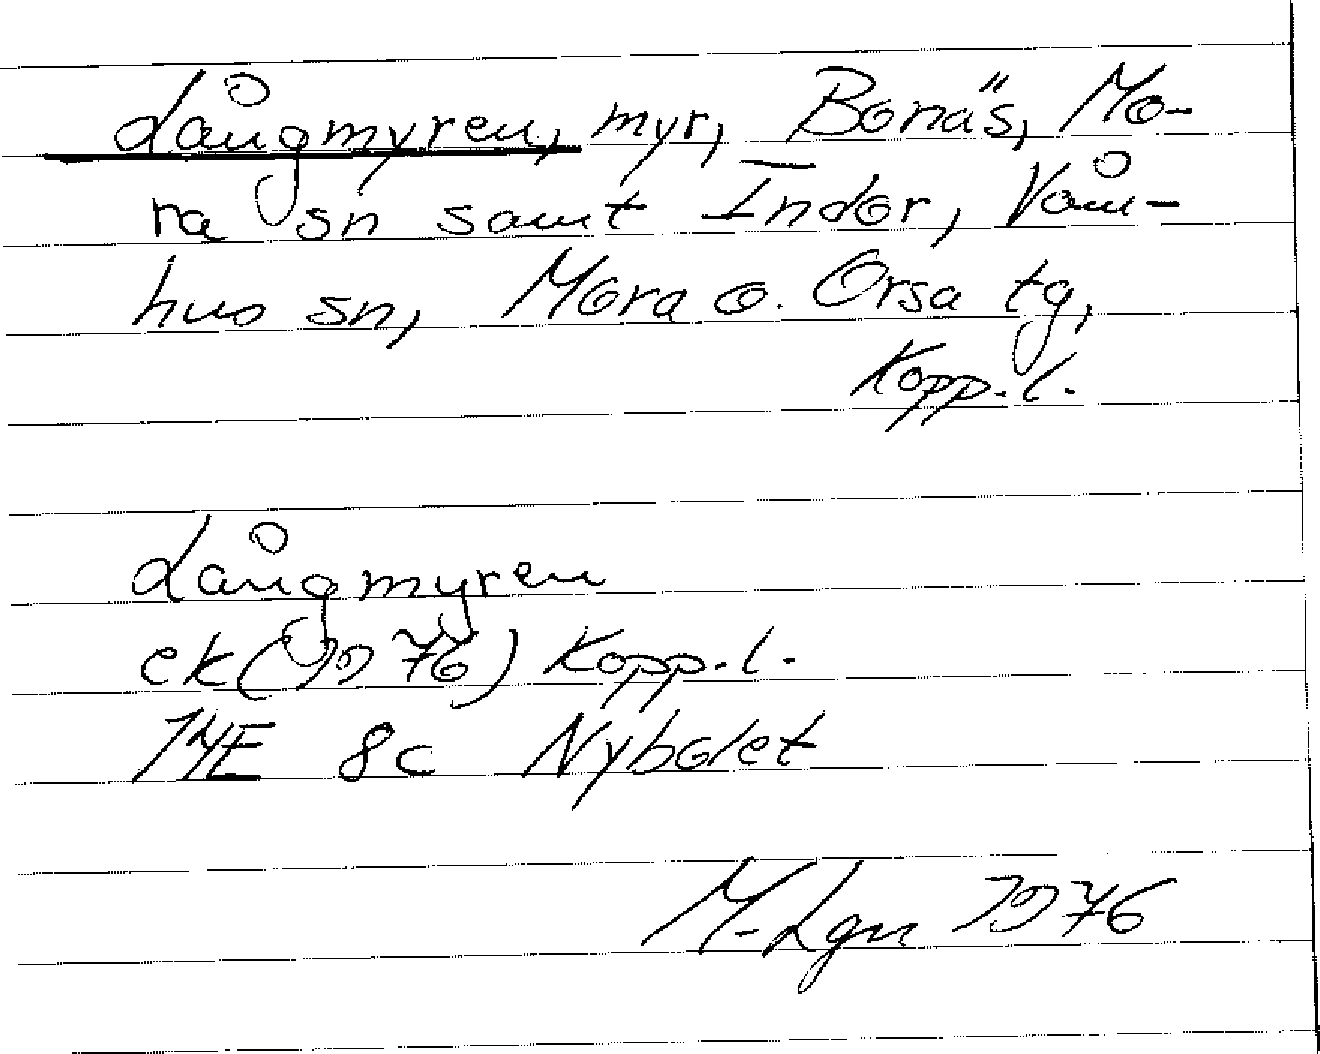 Långmyren, myr, Bonäs, Mo-
ra sn samt Indor, Våm-
hus sn, Mora o. Orsa tg,
Kopp. l.
Långmyren
ek (1976) Kopp. l.
14E 8c Nybolet
M-Lgn 1976